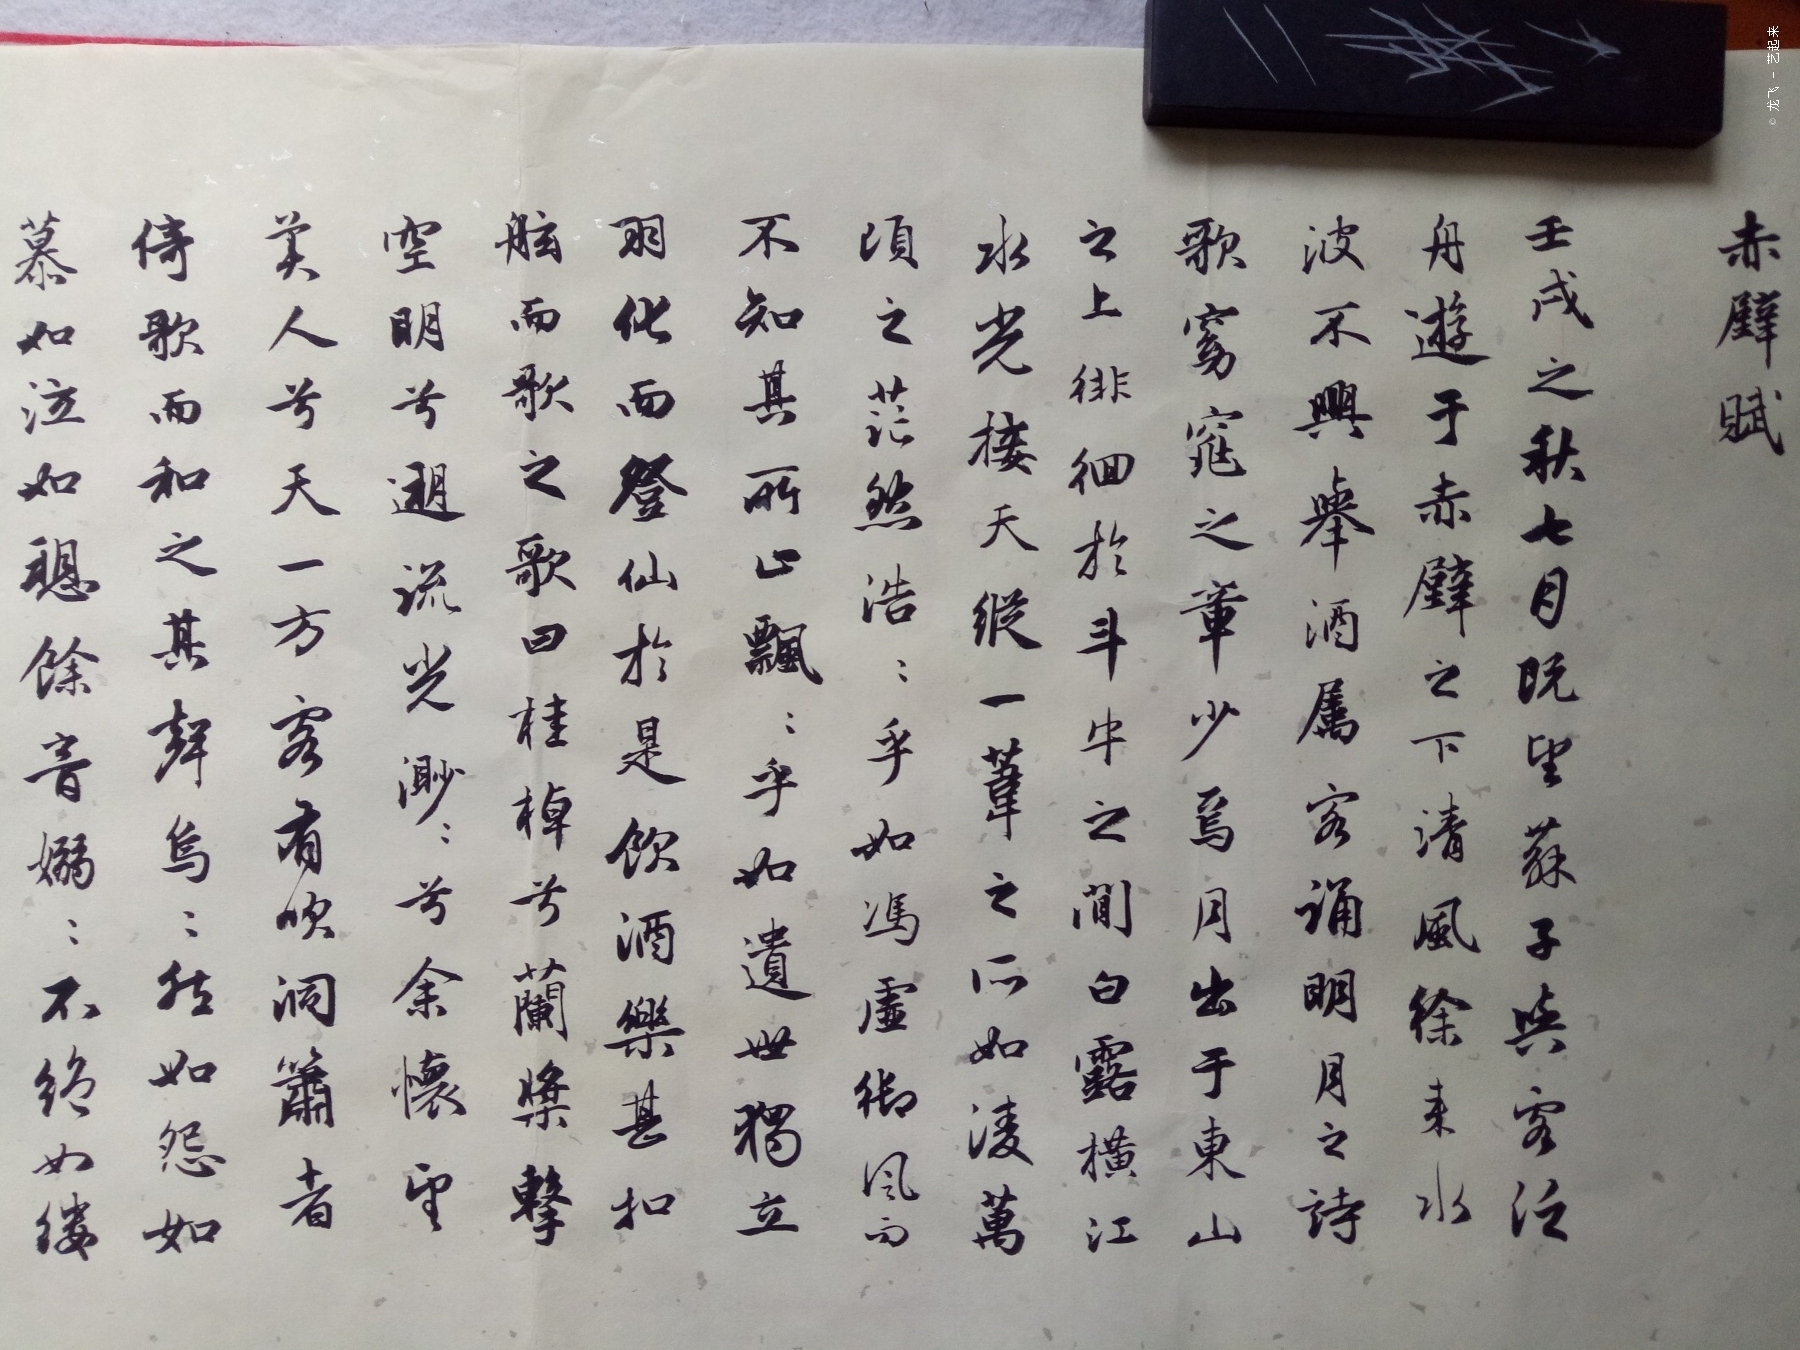 赤壁賦
壬戌之秋七月既望蘇子與客泛
舟遊于赤壁之下清風徐来水
波不興舉酒屬客誦明月之詩
歌窈窕之章少焉月出于東山
之上徘徊於斗牛之間白露横江
水光接天縱一葦之所如淩萬
頃之茫然浩:乎如馮虚御風而
不知其所止飄:乎如遺世獨立
羽化而登仙於是飲酒樂甚扣
舷而歌之歌曰桂棹兮蘭槳擊
空明兮遡流光渺:兮余懷望
美人兮天一方客有吹洞簫者
倚歌而和之其聲烏:然如怨如
慕如泣如聽餘音嫋:不绝如缕
© 龙飞 - 艺起来